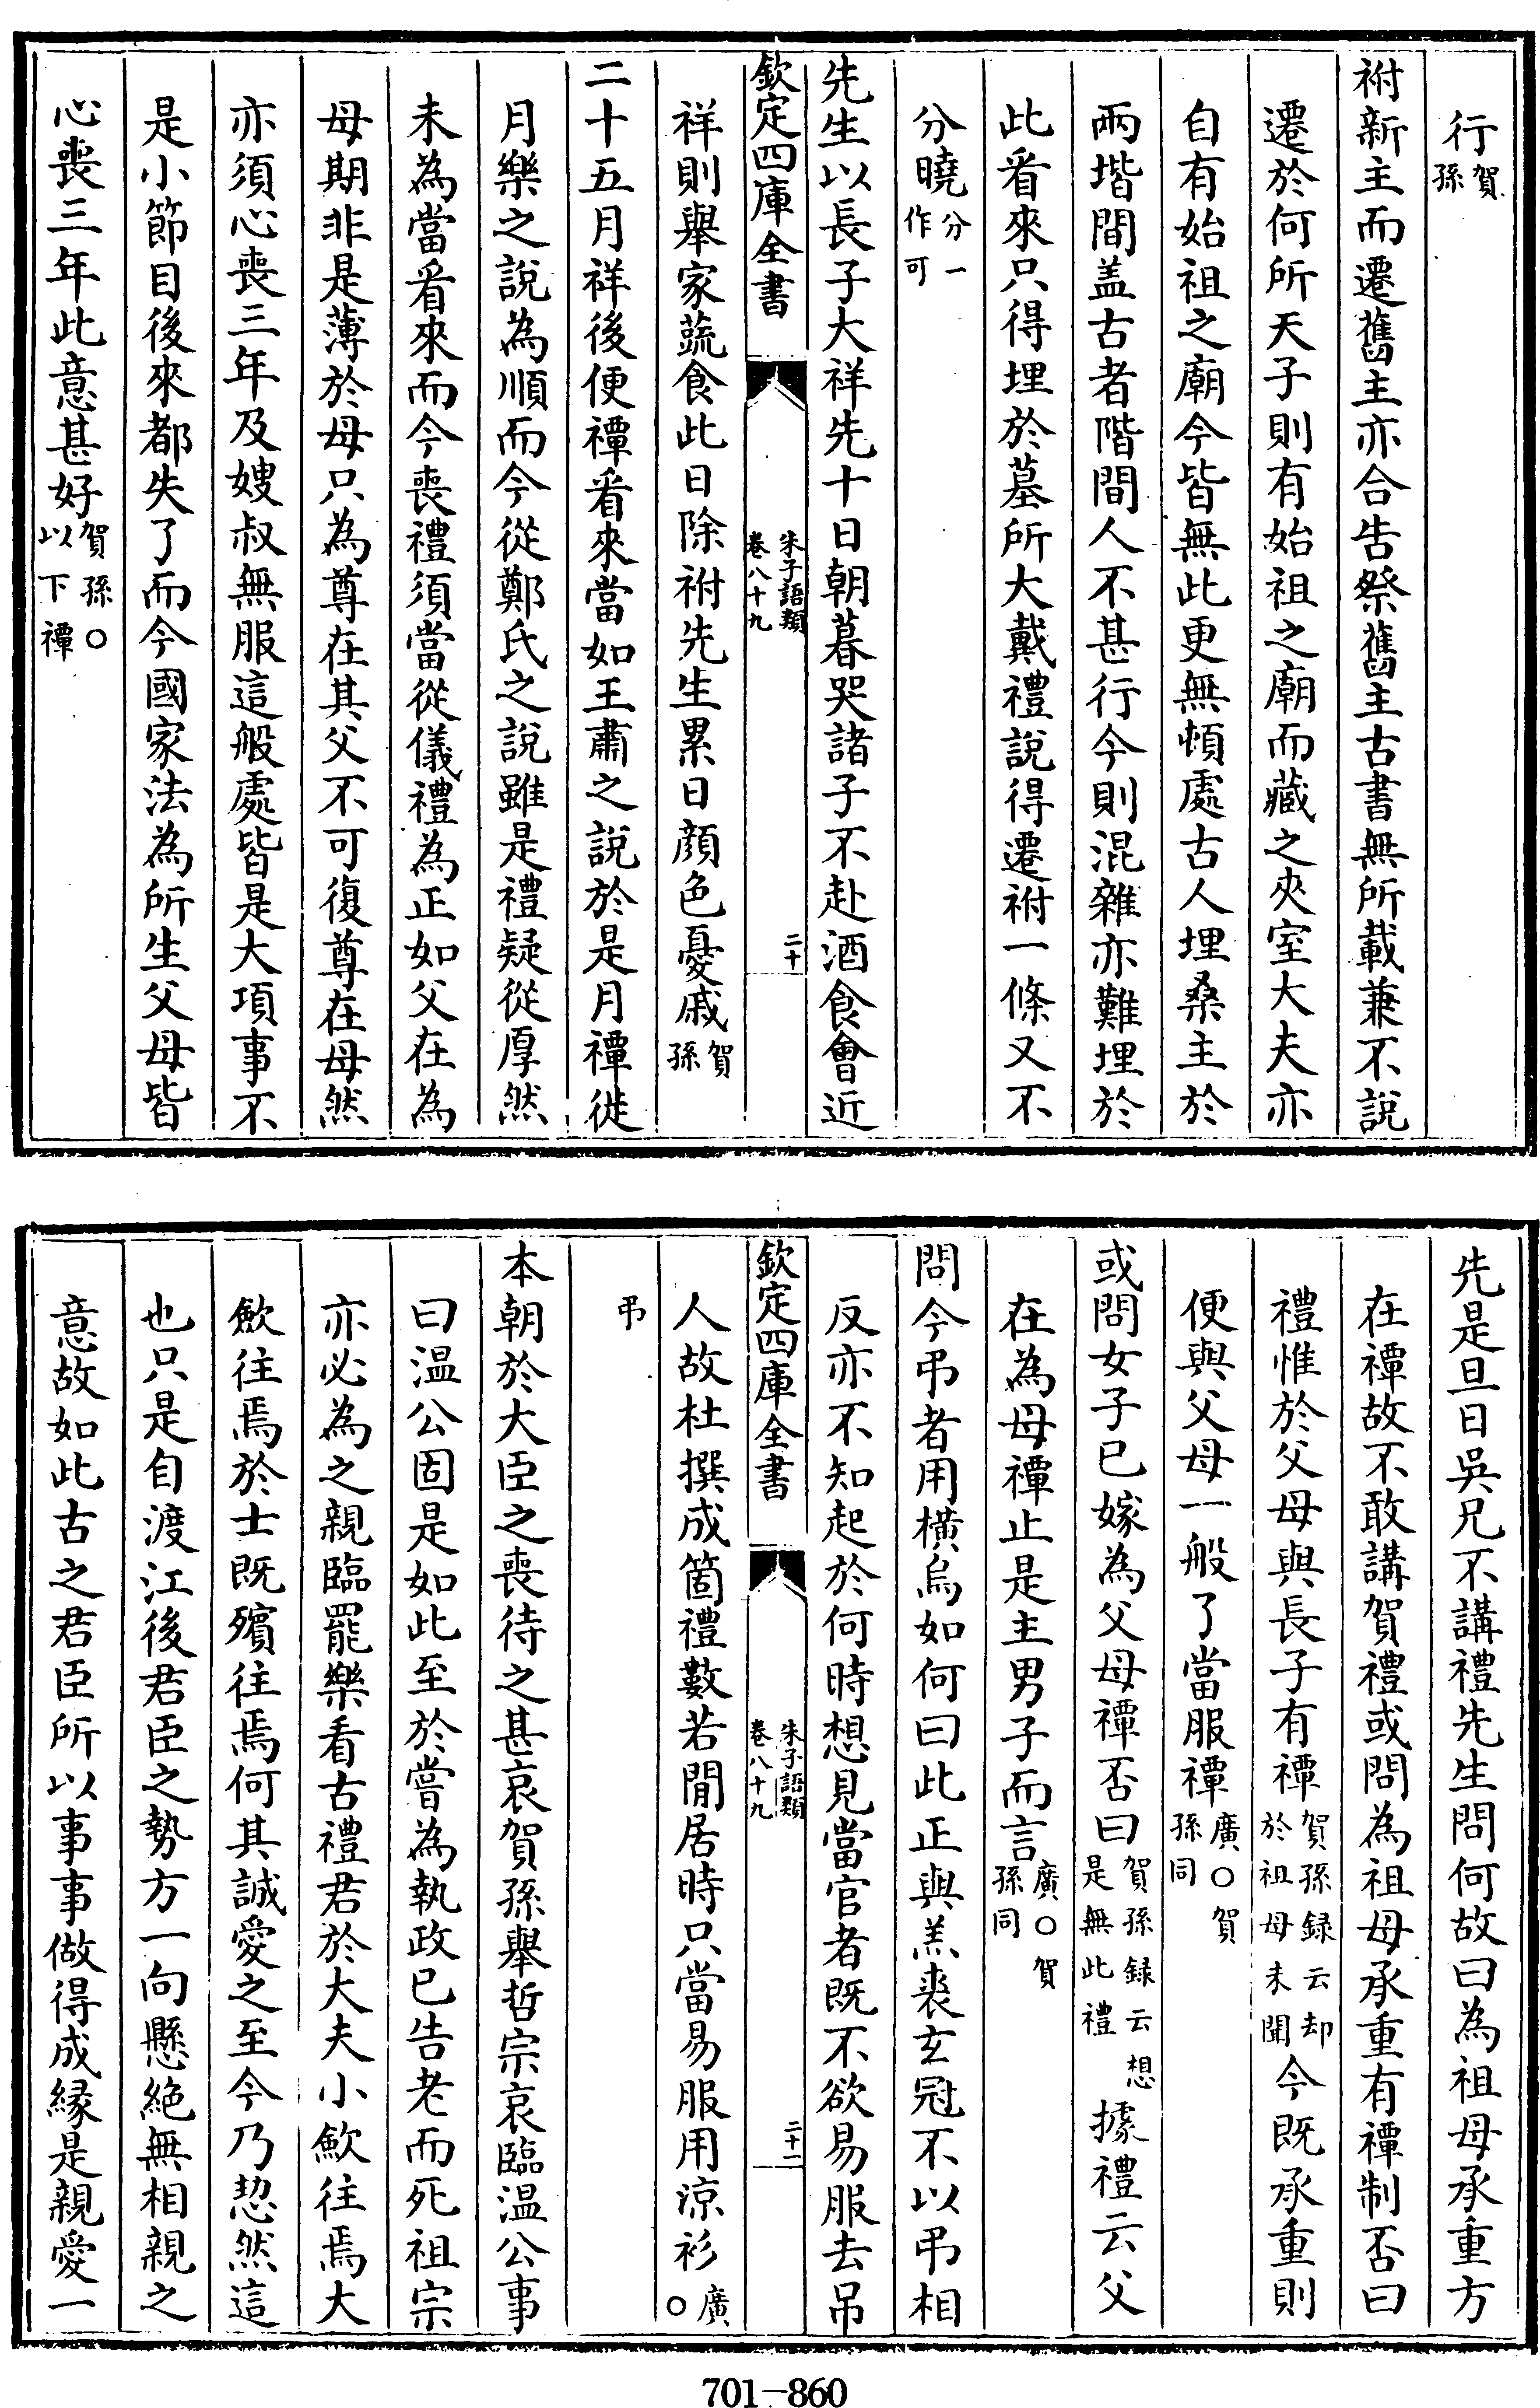 行賀孫
祔新主而遷舊主亦合告祭舊主古書無所載兼不說
遷於何所天子則有始祖之廟而藏之夾室大夫亦
自有始祖之廟今皆無此更無頓處古人埋桑主於
兩堦間盖古者階間人不甚行今則混雜亦難埋於
此看來只得埋於墓所大戴禮說得遷祔一條又不
分曉分一作可
先生以長子大祥先十日朝暮哭諸子不赴酒食會近
欽定四庫全書
朱子語類
卷八十九
二十
祥則舉家蔬食此日除祔先生累日顔色憂戚賀孫
二十五月祥後便禫看來當如王肅之說於是月禫徙
月樂之說為順而今從鄭氏之說雖是禮疑從厚然
未為當看來而今喪禮須當從儀禮為正如父在為
母期非是薄於母只為尊在其父不可復尊在母然
亦須心喪三年及嫂叔無服這般處皆是大項事不
是小節目後來都失了而今國家法為所生父母皆
心喪三年此意甚好賀孫○以下禫
先是旦日吳兄不講禮先生問何故曰為祖母承重方
在禫故不敢講賀禮或問為祖母承重有禫制否曰
禮惟於父母與長子有禫賀孫録云却於祖母未聞今既承重則
便與父母一般了當服禫廣○賀孫同
或問女子已嫁為父母禫否曰賀孫録云想是無此禮據禮云父
在為母禫止是主男子而言廣○賀孫同
問今弔者用橫烏如何曰此正與羔裘玄冠不以弔相
反亦不知起於何時想見當官者既不欲易服去吊
欽定四庫全書
朱子語類
卷八十九
二十一
人故杜撰成箇禮數若閒居時只當易服用涼衫廣○
弔
本朝於大臣之喪待之甚哀賀孫舉哲宗哀臨温公事
曰温公固是如此至於嘗為執政已告老而死祖宗
亦必為之親臨罷樂看古禮君於大夫小歛往焉大
歛往焉於士既殯往焉何其誠愛之至今乃恝然這
也只是自渡江後君臣之勢方一向懸絶無相親之
意故如此古之君臣所以事事做得成縁是親愛一
701-860